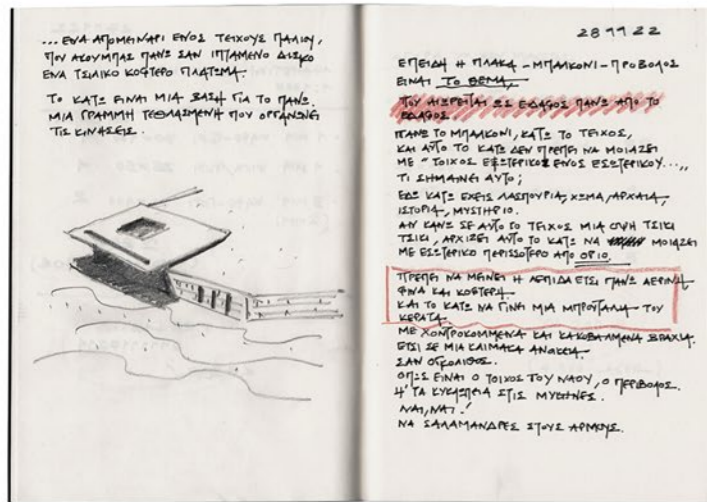 ...ΕΝΑ ΑΠΟΜΕΙΝΑΡΙ ΕΝΟΣ ΤΕΙΧΟΥΣ ΠΑΛΙΟΥ,
ΠΟΥ ΑΚΟΥΜΠΑΣ ΠΑΝΩ ΣΑΝ ΙΠΤΑΜΕΝΟ ΔΙΣΚΟ
ΕΝΑ ΤΣΙΛΙΚΟ ΚΟΦΤΕΡΟ ΠΛΑΤΩΜΑ.
ΤΟ ΚΑΤΩ ΕΙΝΑΙ ΜΙΑ ΒΑΣΗ ΓΙΑ ΤΟ ΠΑΝΩ.
ΜΙΑ ΓΡΑΜΜΗ ΤΕΘΛΑΣΜΕΝΗ ΠΟΥ ΟΡΓΑΝΩΝΕΙ
ΤΙΣ ΚΙΝΗΣΕΙΣ.
28 11 22
ΕΠΕΙΔΗ Η ΠΛΑΚΑ - ΜΠΑΛΚΟΝΙ - ΠΡΟΒΟΛΟΣ
ΕΙΝΑΙ ΤΟ ΘΕΜΑ,
ΠΟΥ ΑΙΩΡΕΙΤΑΙ ΩΣ ΕΔΑΦΟΣ ΠΑΝΩ ΑΠΟ ΤΟ
ΕΔΑΦΟΣ
ΠΑΝΩ ΤΟ ΜΠΑΛΚΟΝΙ, ΚΑΤΩ ΤΟ ΤΕΙΧΟΣ,
ΚΑΙ ΑΥΤΟ ΤΟ ΚΑΤΩ ΔΕΝ ΠΡΕΠΕΙ ΝΑ ΜΟΙΑΖΕΙ
ΜΕ "ΤΟΙΧΟΣ ΕΞΩΤΕΡΙΚΟΣ ΕΝΟΣ ΕΣΩΤΕΡΙΚΟΥ...,,
ΤΙ ΣΗΜΑΙΝΕΙ ΑΥΤΟ;
ΕΔΩ ΚΑΤΩ ΕΧΕΙΣ ΛΑΣΠΟΥΡΙΑ, ΧΩΜΑ, ΑΡΧΑΙΑ,
ΙΣΤΟΡΙΑ, ΜΥΣΤΗΡΙΟ.
ΑΝ ΚΑΝΩ ΣΕ ΑΥΤΟ ΤΟ ΤΕΙΧΟΣ ΜΙΑ ΟΨΗ ΤΣΙΚΙ
ΤΣΙΚΙ, ΑΡΧΙΖΕΙ ΑΥΤΟ ΤΟ ΚΑΤΩ ΝΑ ΜΟΙΑΖΕΙ
ΜΕ ΕΣΩΤΕΡΙΚΟ ΠΕΡΙΣΣΟΤΕΡΟ ΑΠΟ ΟΡΙΟ.
ΠΡΕΠΕΙ ΝΑ ΜΕΙΝΕΙ Η ΛΕΠΙΔΑ ΕΤΣΙ ΠΑΝΩ ΑΕΡΙΝΗ
ΦΙΝΑ ΚΑΙ ΚΟΦΤΕΡΗ.
ΚΑΙ ΤΟ ΚΑΤΩ ΝΑ ΓΙΝΕΙ ΜΙΑ ΜΠΡΟΥΤΑΛΙΑ ΤΟΥ
ΚΕΡΑΤΑ.
ΜΕ ΧΟΝΤΡΟΚΟΜΜΕΝΑ ΚΑΙ ΚΑΚΟΒΑΛΜΕΝΑ ΒΡΑΧΙΑ.
ΕΤΣΙ ΣΕ ΜΙΑ ΚΛΙΜΑΚΑ ΑΝΟΙΚΕΙΑ.
ΣΑΝ ΟΓΚΟΛΙΘΟΣ.
ΟΠΩΣ ΕΙΝΑΙ Ο ΤΟΙΧΟΣ ΤΟΥ ΝΑΟΥ, Ο ΠΕΡΙΒΟΛΟΣ.
Ή ΤΑ ΚΥΚΛΩΠΕΙΑ ΣΤΙΣ ΜΥΚΗΝΕΣ.
ΝΑΙ, ΝΑΙ!
ΝΑ ΣΑΛΑΜΑΝΔΡΕΣ ΣΤΟΥΣ ΑΡΜΟΥΣ.